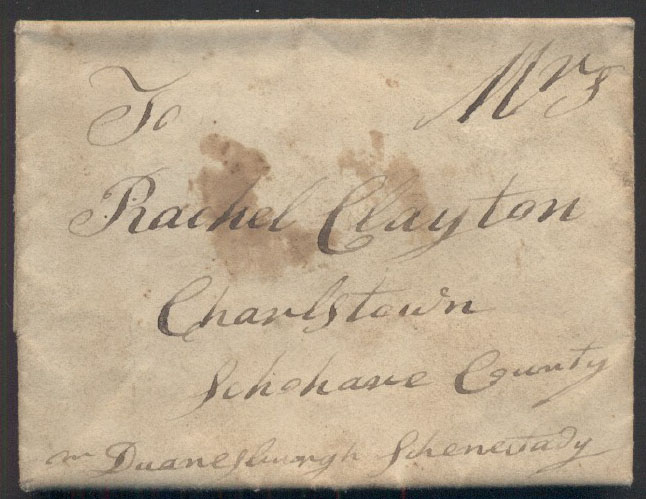 To Mrs
Rachel Clayton
Charlstown
Schohare County
Duanesburgh Schenectady